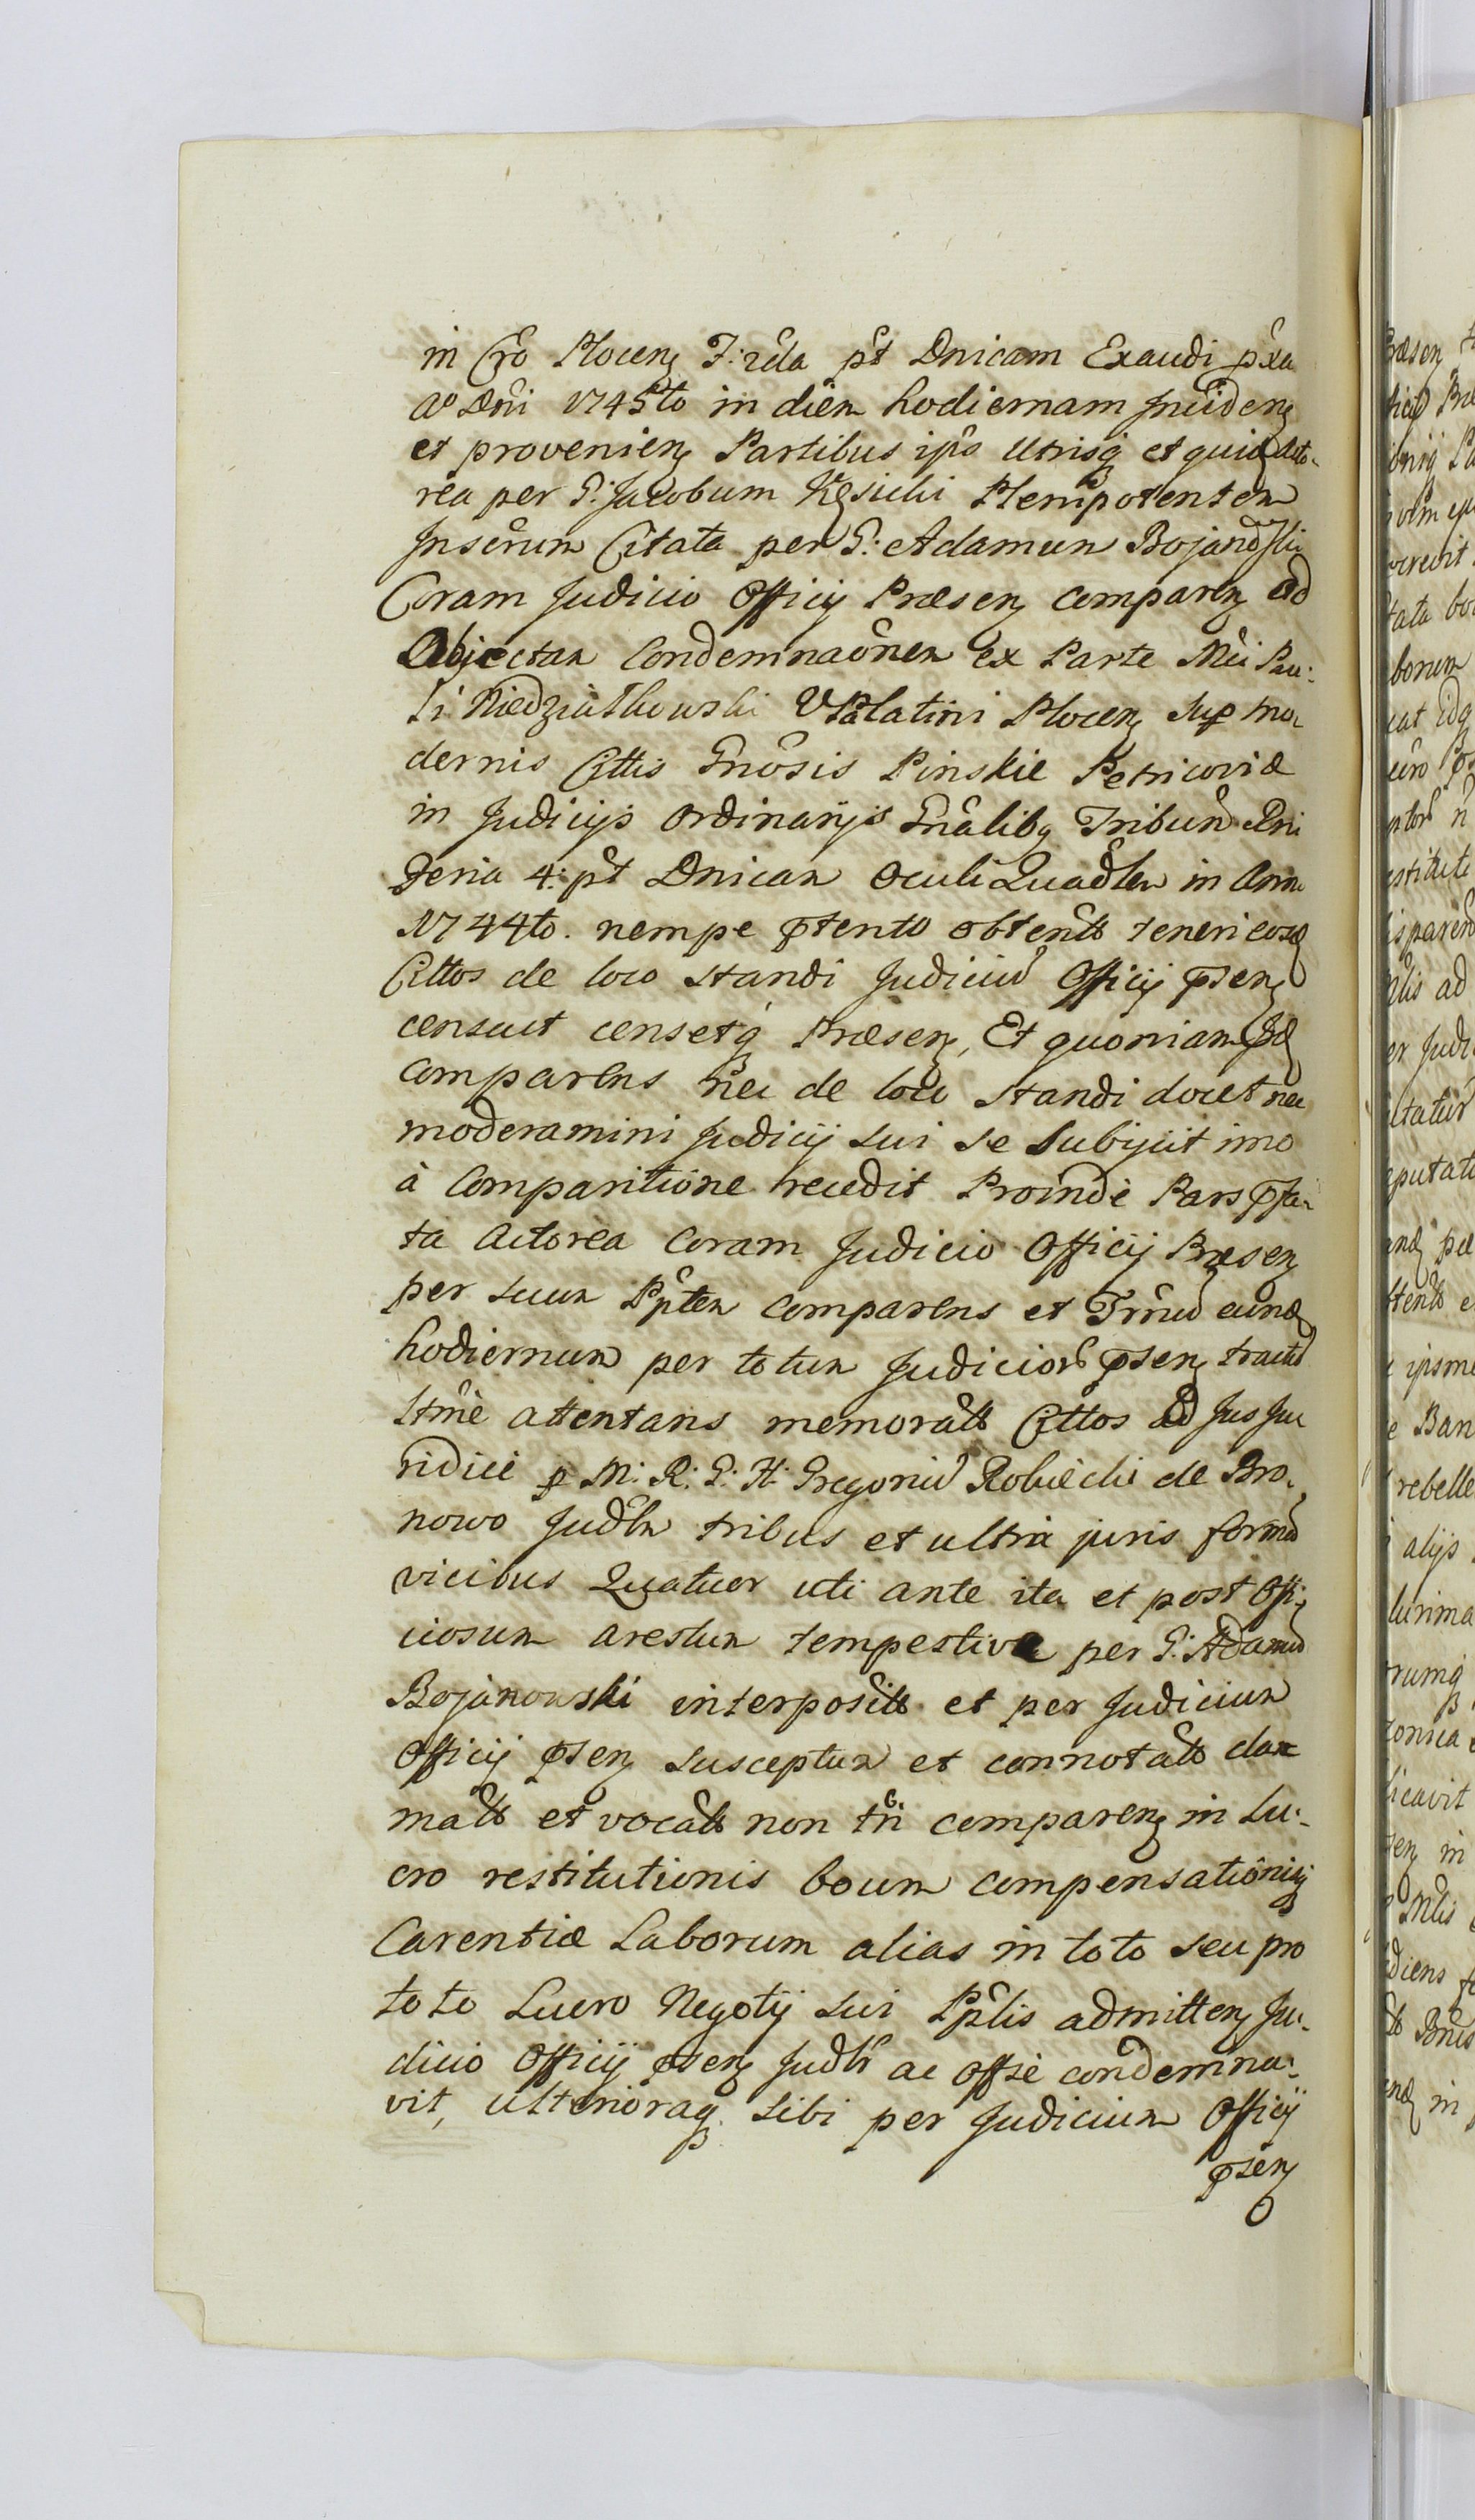 in Cro Plocen F: 2da pt Dnicam Exaudi pxa
Ao Dni 1745to in diem hodiernam inciden
et provenien Partibus ipis Utrisq et quid Acto-
rea per G: Jacobum Kęsicki Plenipotentem
Inserum Citata per G: Adamum Bojanoski
Coram Judicio Officij Præsen comparen ad
Objectam Condemnaonem ex Parte Mci Pau-
li Niedziałkowski V Palatini Plocen sup mo-
dernis Cittis Gnosis Pinskie Petricoviæ
in Judicijs ordinarijs Gnalibq Tribun Rni
Feria 4: pt Dnicam Oculi Quadlem in Anno
1744to. nempe ptento obtento teneri eosd
Cittos de loco standi Judicium Officij psen
censuit censetq Præsen, Et quoniam
comparens nec de loco standi docet nec
moderamini Judicij sui se subijcit imo
à Comparitione recedit Proinde Pars pfa-
ta Actorea Coram Judicio Officij Præsen
per suum Pptem comparens et Trnum eund
hodiernum per totum Judicior psen tractum
Ltme attentans memoratt Cittos ad Jus Ju
ridice p M: R: G: H: Gregorium Robiecki de Bro-
nowo Judlem tribus et ultra juris formam
vicibus Quatuor uti ante ita et post Offi-
ciosum arestum tempestive per G: Adamum
Bojanowski interposito et per Judicium
Officij psen susceptum et connotato clar
matt et vocatt non tn comparen in Lu-
cro restitutionis boum compensationisq
Carentiæ Laborum alias in toto seu pro
toto Lucro Negotij sui Pplis admitten Ju-
dicio Officij psen Judlr ac offse condemna-
vit, ulterioraq sibi per Judicium Officij
psen